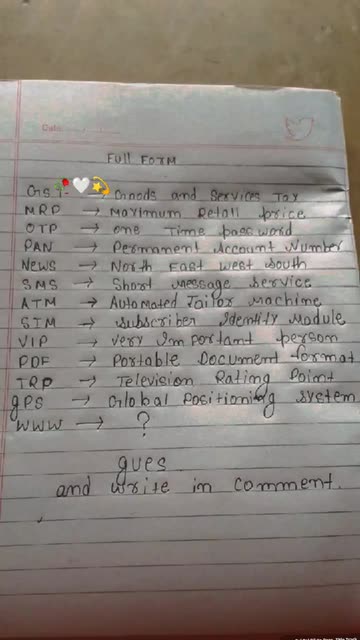 Date:
FULL FORM
GST → Goods and Services Tax
MRP → Maximum Retail price
OTP → one Time password
PAN → Permanent Account Number
NEWS → North East West South
SMS → Short Message Service
ATM → Automated Tailor Machine
SIM → Subscriber Identity Module
VIP → Very Important person
PDF → Portable Document format
TRP → Television Rating Point
gPS → Global Positioning System
WWW → ?
gues
and write in comment.